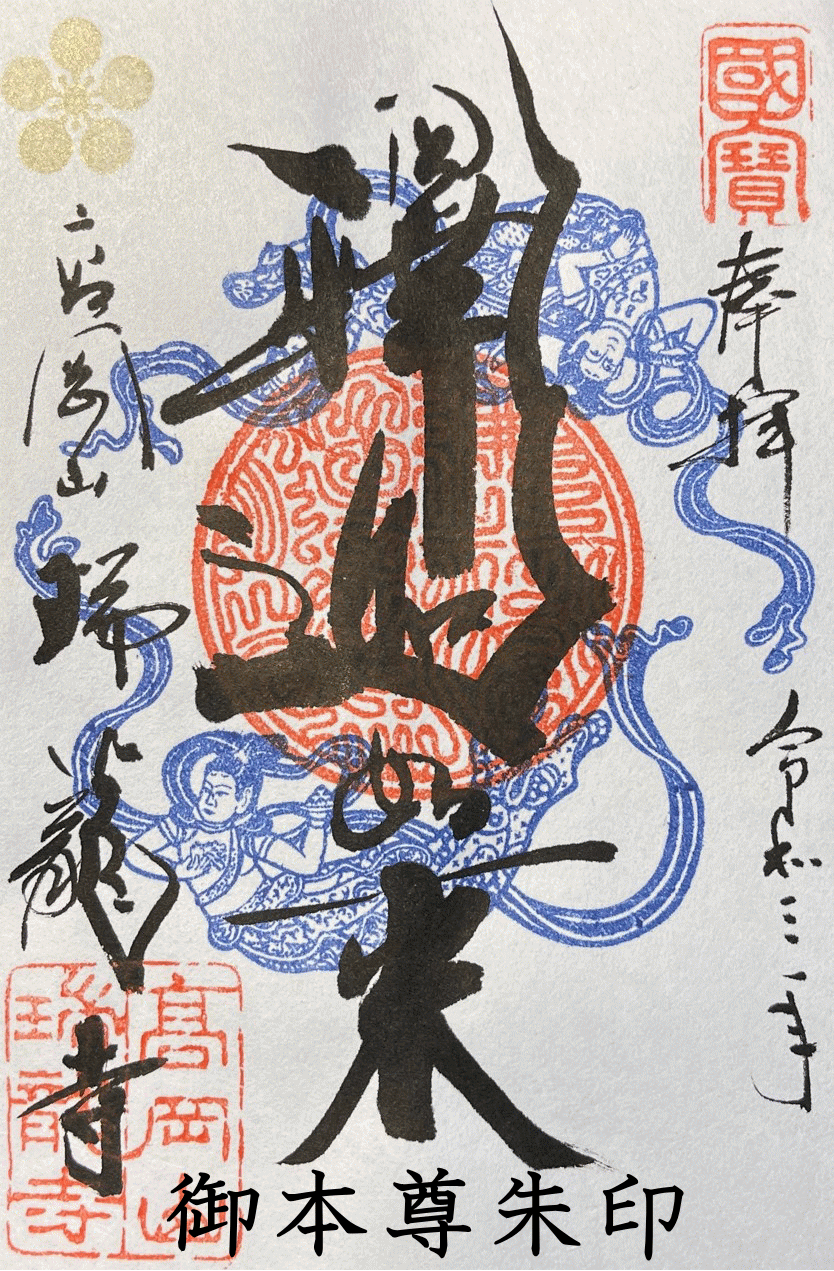 國寶
奉拝
令和三年
釋迦如来
高岡山
瑞龍寺
高岡山
瑞龍寺
御本尊朱印